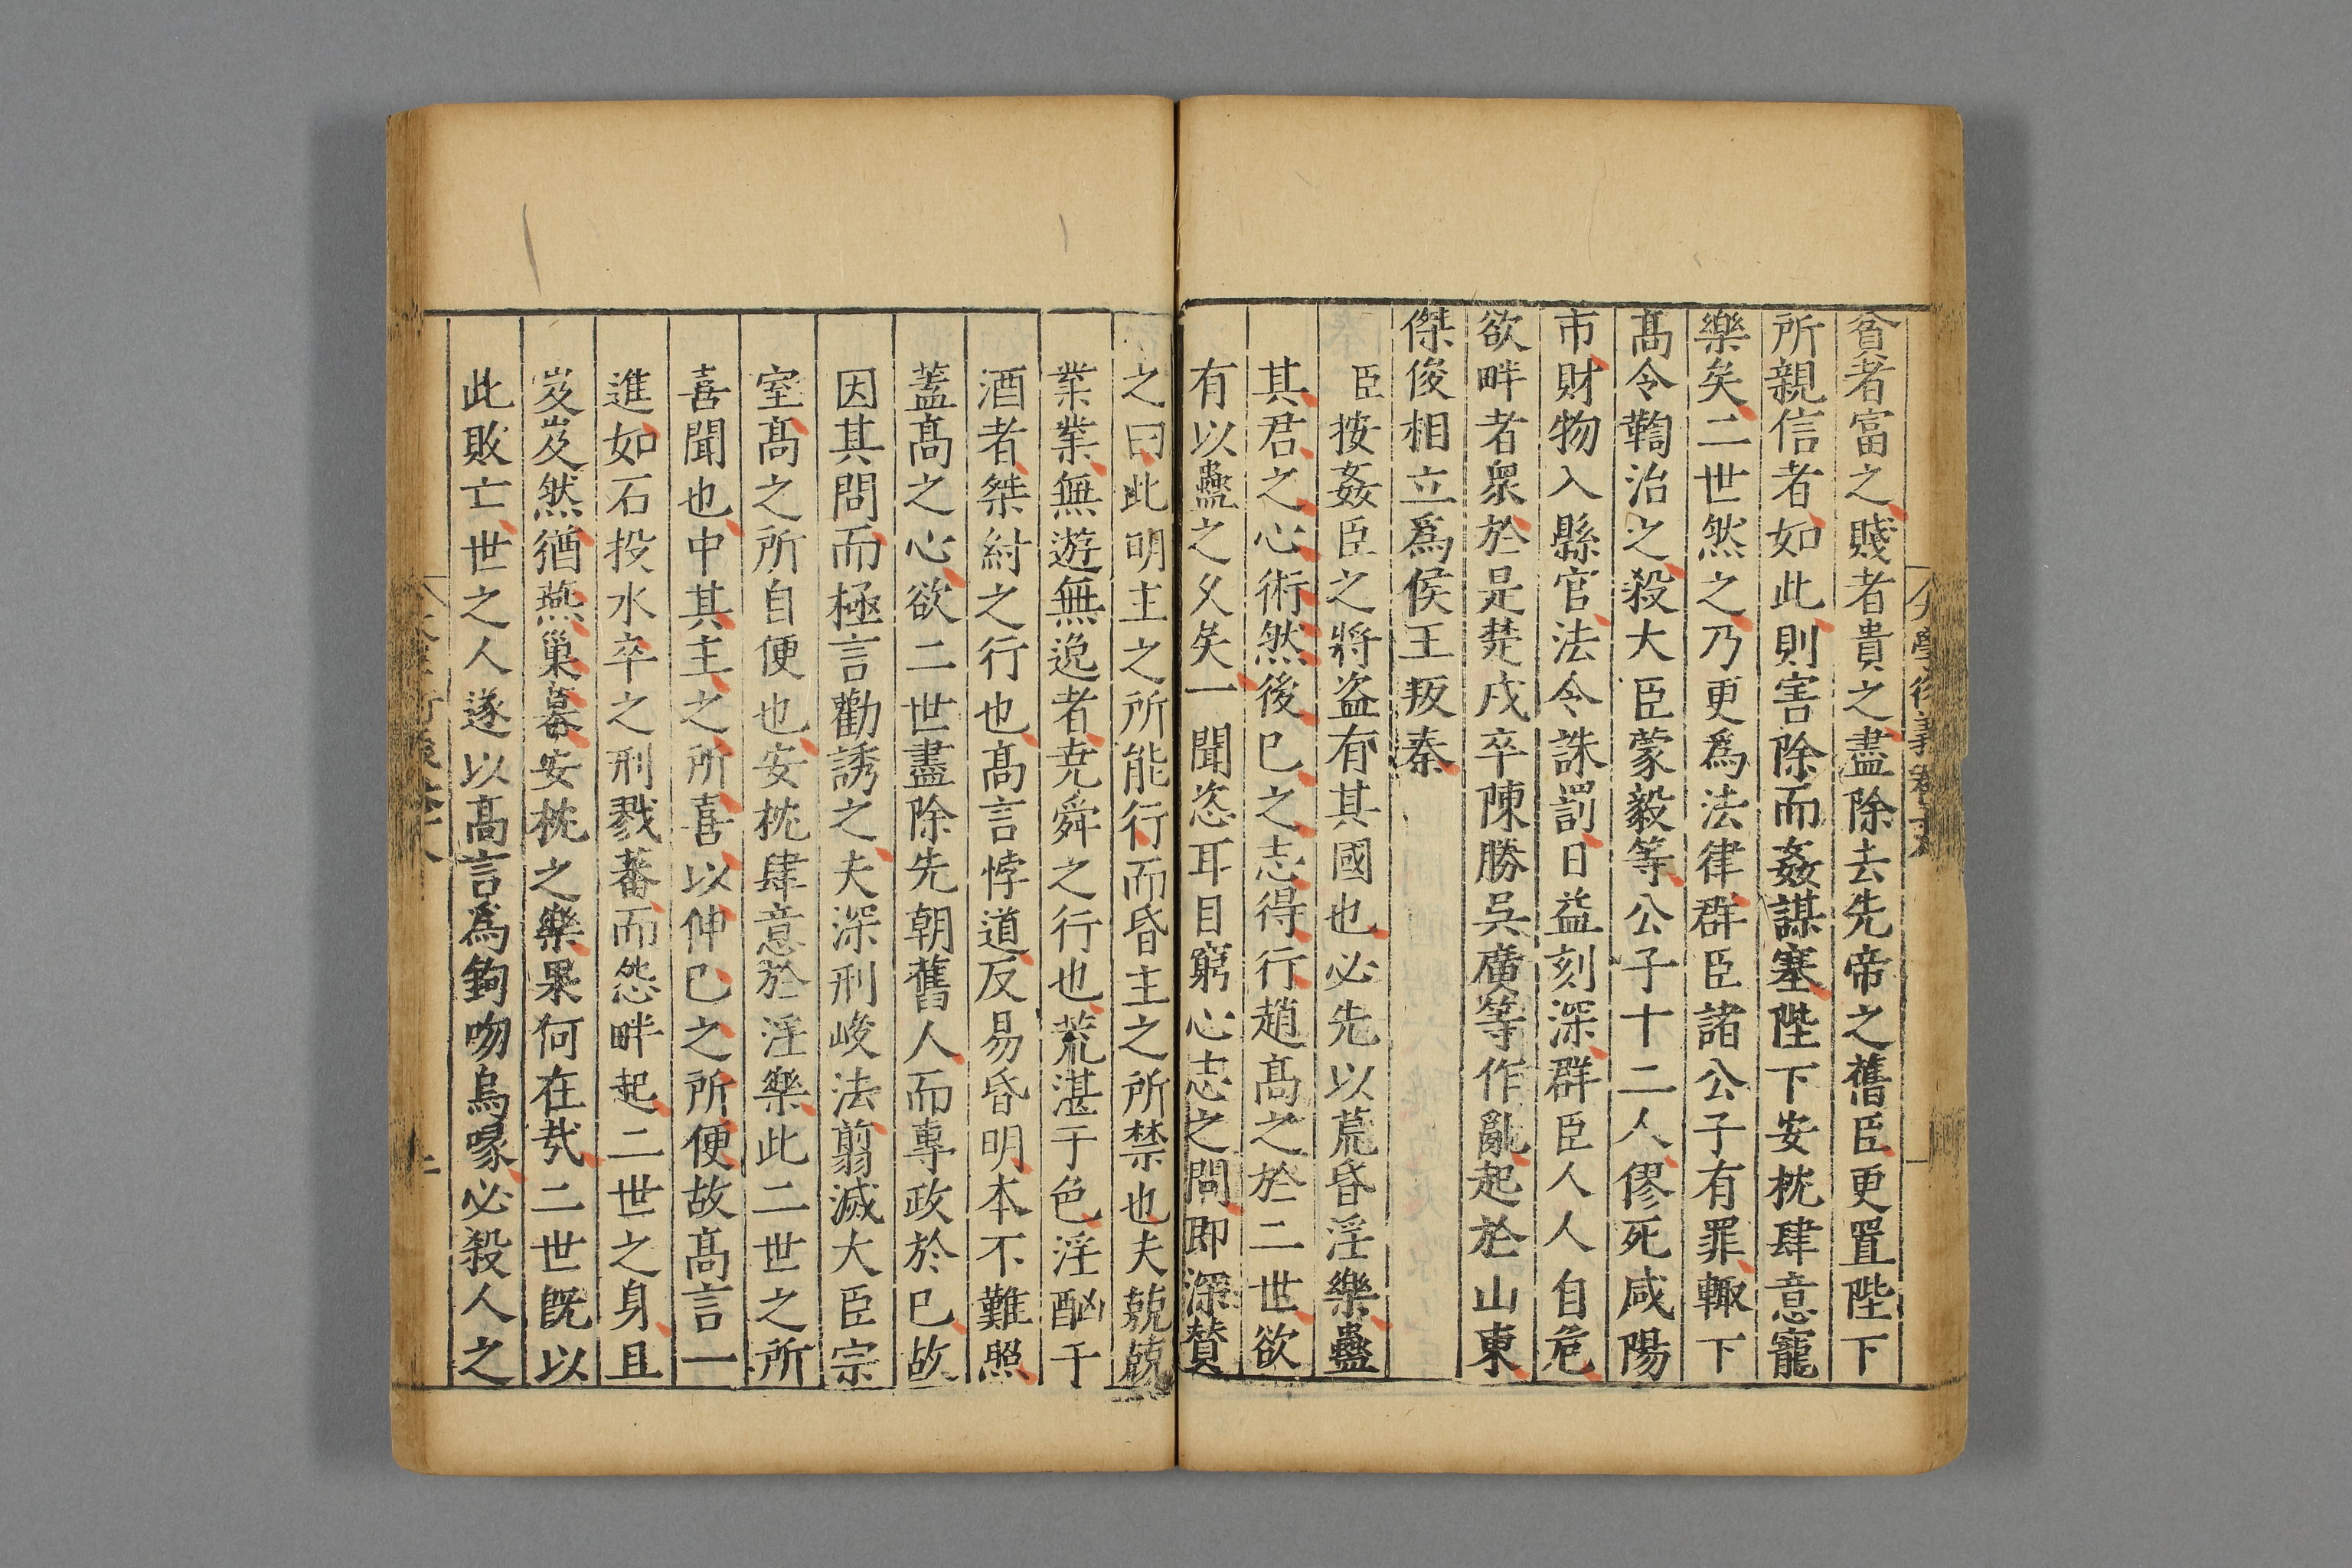 貧者富之賤者貴之盡除去先帝之舊臣更置陛下
所親信者如此則害除而姦謀塞陛下安枕肆意寵
樂矣二世然之乃更爲法律群臣諸公子有罪輙下
髙令鞫治之殺大臣蒙毅等公子十二人僇死咸陽
市財物入縣官法令誅罰日益刻深群臣人人自危
欲畔者衆於是楚戍卒陳勝吳廣等作亂起於山東
傑俊相立爲侯王叛秦
臣按姦臣之將盗有其國也必先以荒昏淫樂蠱
其君之心術然後已之志得行趙髙之於二世欲
有以蠱之乆矣一聞恣耳目窮心志之問即深賛
之曰此明主之所能行而昏主之所禁也夫兢兢
業業無遊無逸者尭舜之行也荒湛于色淫酗于
酒者桀紂之行也髙言悖道反易昏明本不難照
蓋髙之心欲二世盡除先朝舊人而專政於已故
因其問而極言勸誘之夫深刑峻法翦滅大臣宗
室髙之所自便也安枕肆意於淫樂此二世之所
喜聞也中其主之所喜以伸已之所便故髙言一
進如石投水卒之刑戮蕃而怨畔起二世之身且
岌岌然猶燕巢幕安枕之樂果何在㢤二世旣以
此敗亡世之人遂以髙言爲鉤吻烏喙必殺人之